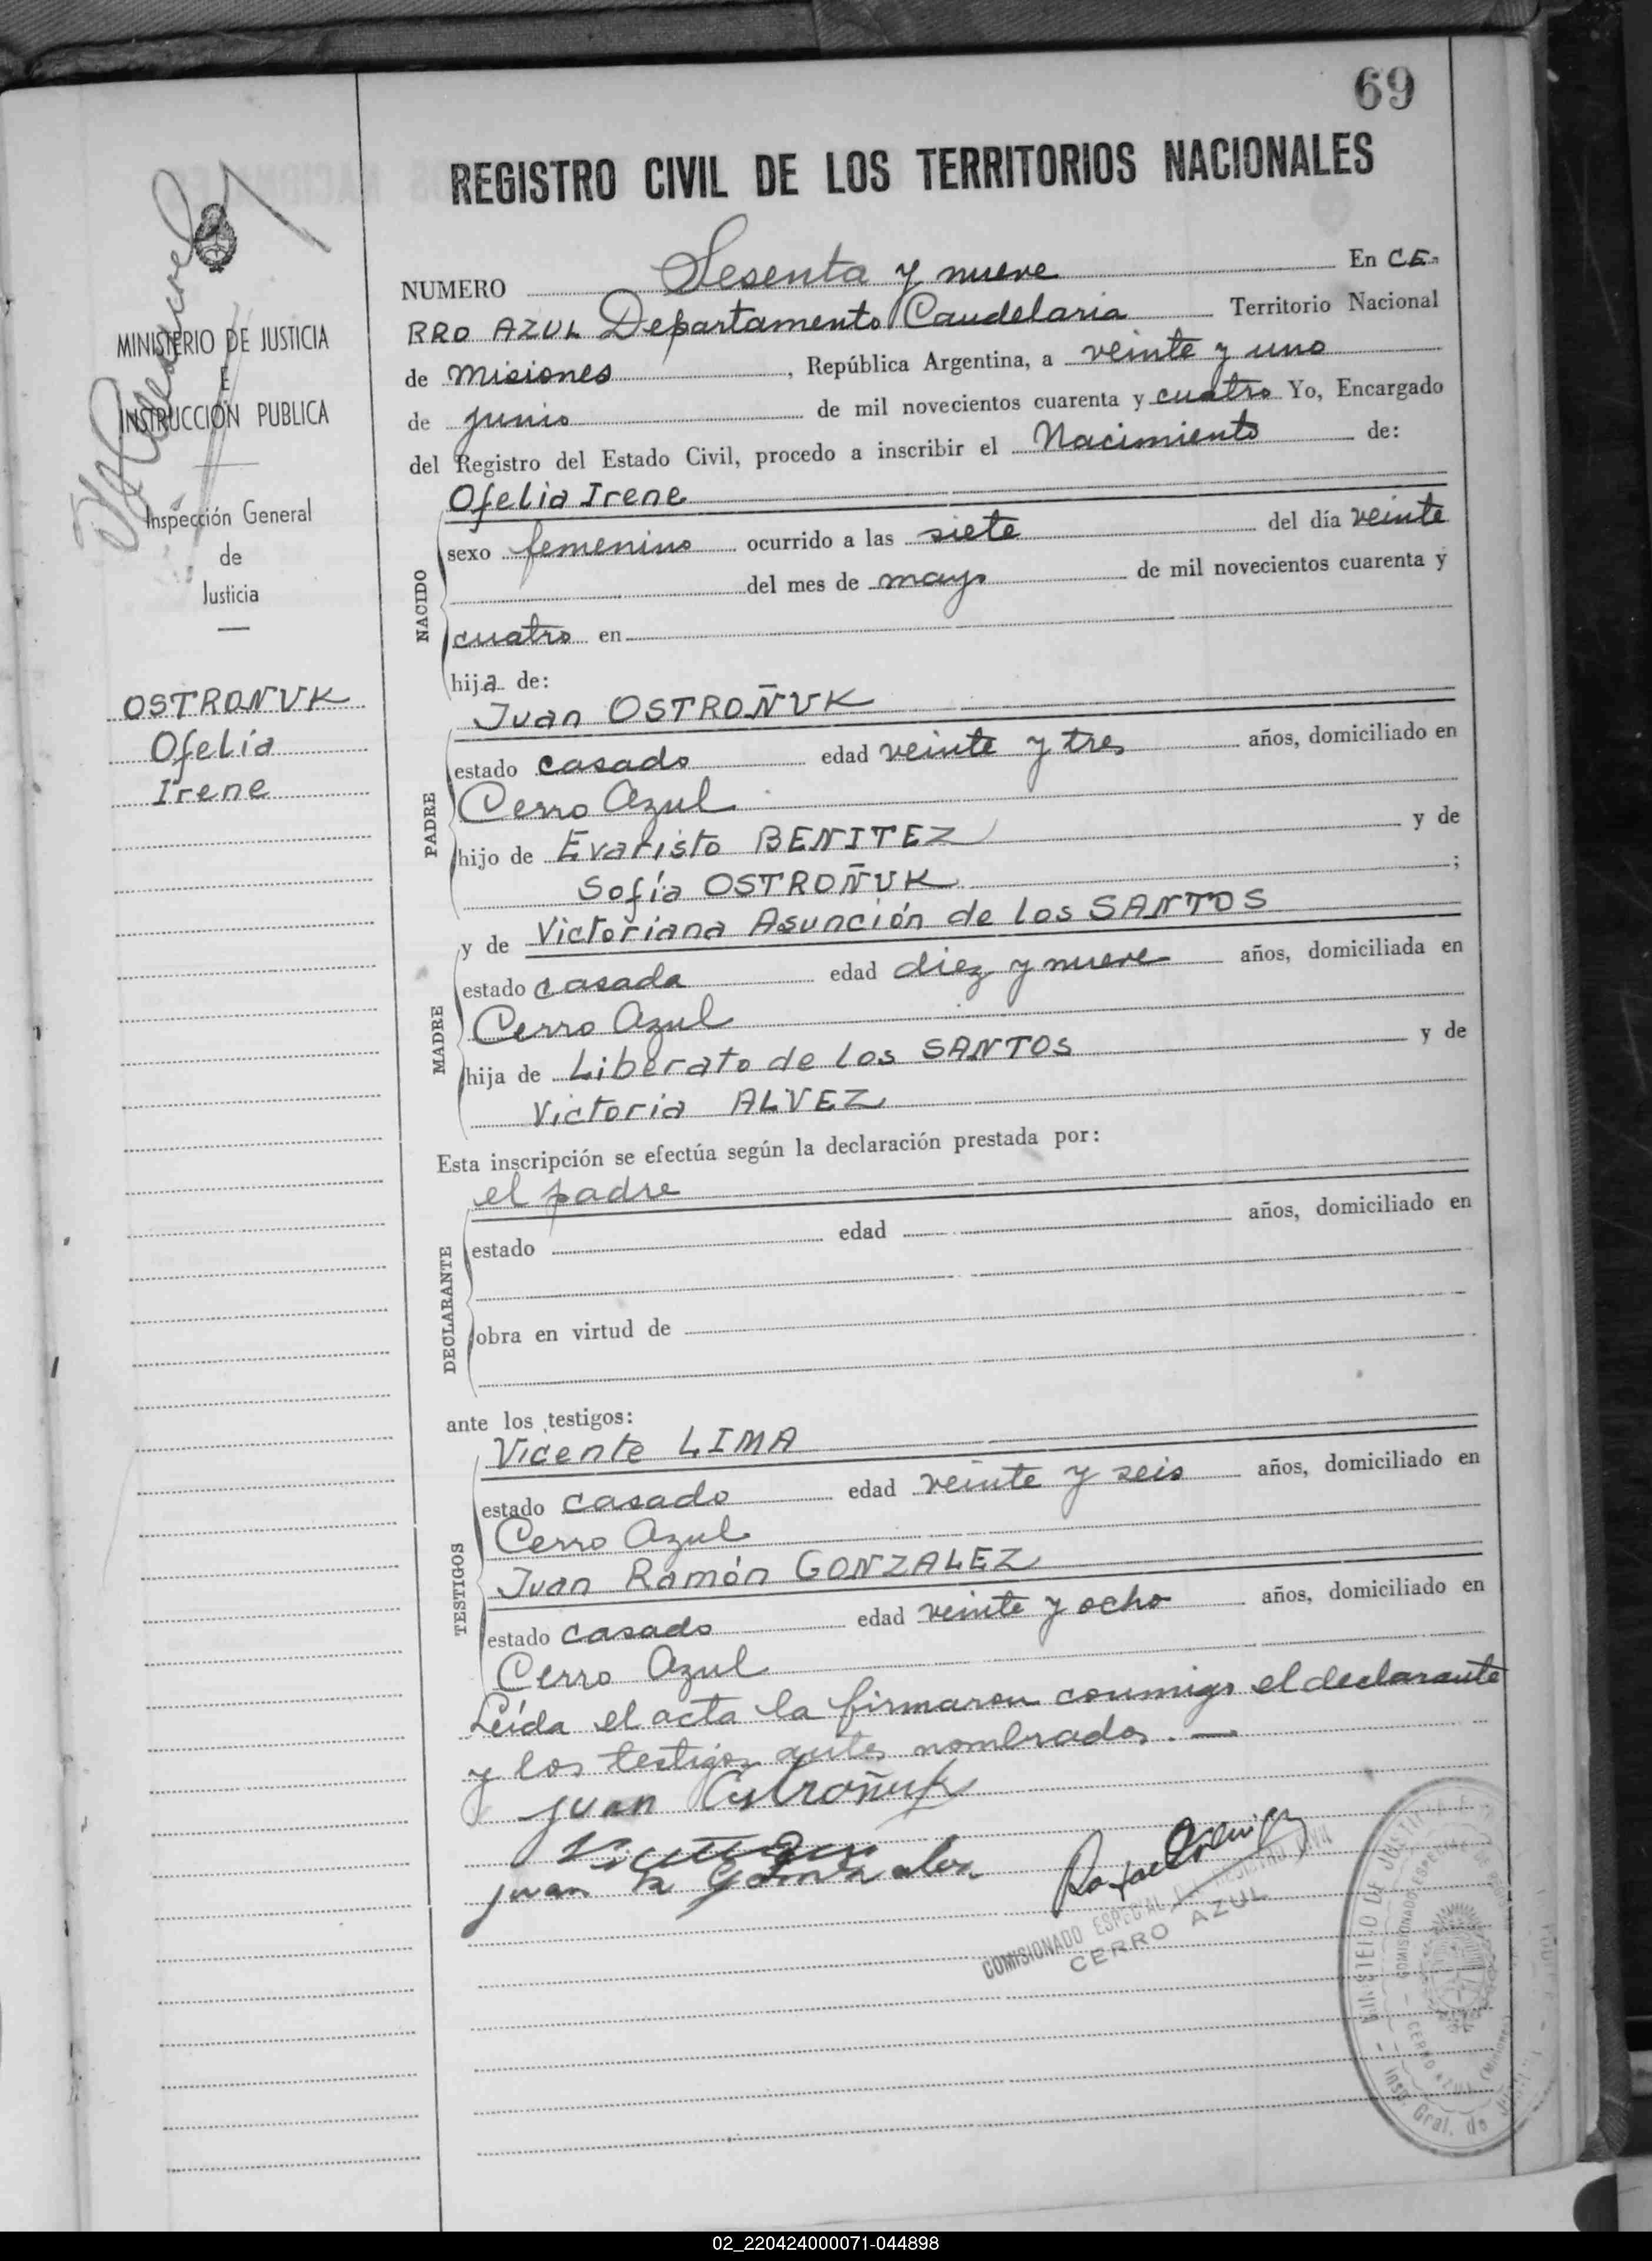 69
REGISTRO CIVIL DE LOS TERRITORIOS NACIONALES
MINISTERIO DE JUSTICIA
E
INSTRUCCIÓN PUBLICA
Inspección General
de
Justicia
OSTROÑUK
Ofelia
Irene
NUMERO Sesenta y nueve En CE-
RRO AZUL Departamento Candelaria Territorio Nacional
de Misiones, República Argentina, a veinte y uno
de junio de mil novecientos cuarenta y cuatro Yo, Encargado
del Registro del Estado Civil, procedo a inscribir el Nacimiento de:
NACIDO
Ofelia Irene
sexo femenino ocurrido a las siete del día veinte
del mes de mayo de mil novecientos cuarenta y
cuatro en
hija de:
PADRE
Juan OSTROÑUK
estado casado edad veinte y tres años, domiciliado en
Cerro Azul
hijo de Evaristo BENITEZ y de
Sofía OSTROÑUK ;
MADRE
y de Victoriana Asunción de los SANTOS
estado casada edad diez y nueve años, domiciliada en
Cerro Azul
hija de Liberato de los SANTOS y de
Victoria ALVEZ
Esta inscripción se efectúa según la declaración prestada por:
DECLARANTE
el padre
estado edad años, domiciliado en
obra en virtud de
ante los testigos:
TESTIGOS
Vicente LIMA
estado casado edad veinte y seis años, domiciliado en
Cerro Azul
Juan Ramón GONZALEZ
estado casado edad veinte y ocho años, domiciliado en
Cerro Azul
Leída el acta la firmaron conmigo el declarante
y los testigos antes nombrados. —
Juan Ostroñuk
Juan R Gonzalez
COMISIONADO ESPECIAL DEL REGISTRO CIVIL
CERRO AZUL
MINISTERIO DE JUSTICIA E
COMISIONADO ESPECIAL DE REG
CERRO AZUL (Misiones)
Insp. Gral. de
02_220424000071-044898